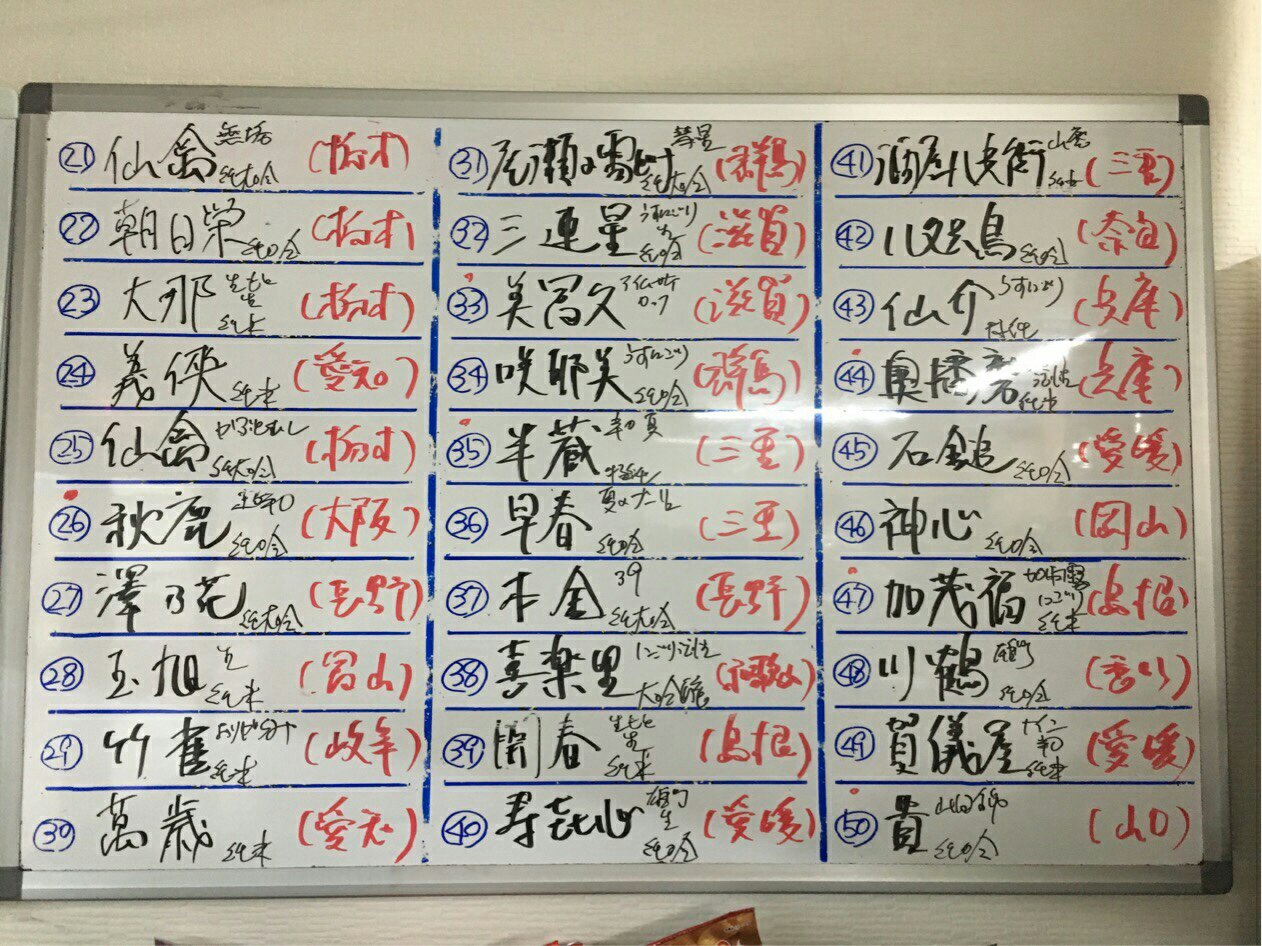 ㉑ 仙禽 無垢 純大吟 (栃木)
㉒ 朝日栄 純吟 (栃木)
㉓ 大那 生もと 生 純米 (栃木)
㉔ 義侠 純米 (愛知)
㉕ 仙禽 かぶとむし 純大吟 (栃木)
㉖ 秋鹿 純吟 (大阪)
㉗ 澤乃花 純大吟 (長野)
㉘ 玉旭 生 純米 (富山)
㉙ 竹雀 純米 (岐阜)
㊴ 萬歳 純米 (愛知)
㉛ 尾瀬の雪どけ 彗星 純大吟 (群馬)
㉜ 三連星 うすにごり 生 純吟 (滋賀)
㉝ 美冨久 (滋賀)
㉞ 咲耶美 うすにごり 純吟 (群馬)
㉟ 半蔵 特純 (三重)
㊱ 早春 純吟 (三重)
㊲ 本金 39 純大吟 (長野)
㊳ 喜楽里 にごり活性 大吟醸
㊴ 開春 生もと 生 純米 (島根)
㊵ 寿喜心 雄町 生 純吟 (愛媛)
㊶ 酒屋八兵衛 山廃 純米 (三重)
㊷ 八咫烏 純吟 (奈良)
㊸ 仙介 うすにごり 特純 (兵庫)
㊹ 奥播磨 活性 純米 (兵庫)
㊺ 石鎚 純吟 (愛媛)
㊻ 神心 純吟 (岡山)
㊼ 加茂福 にごり 純米 (島根)
㊽ 川鶴 雄町 純吟 (香川)
㊾ 賀儀屋 純米 (愛媛)
㊿ 貴 山田錦 純吟 (山口)